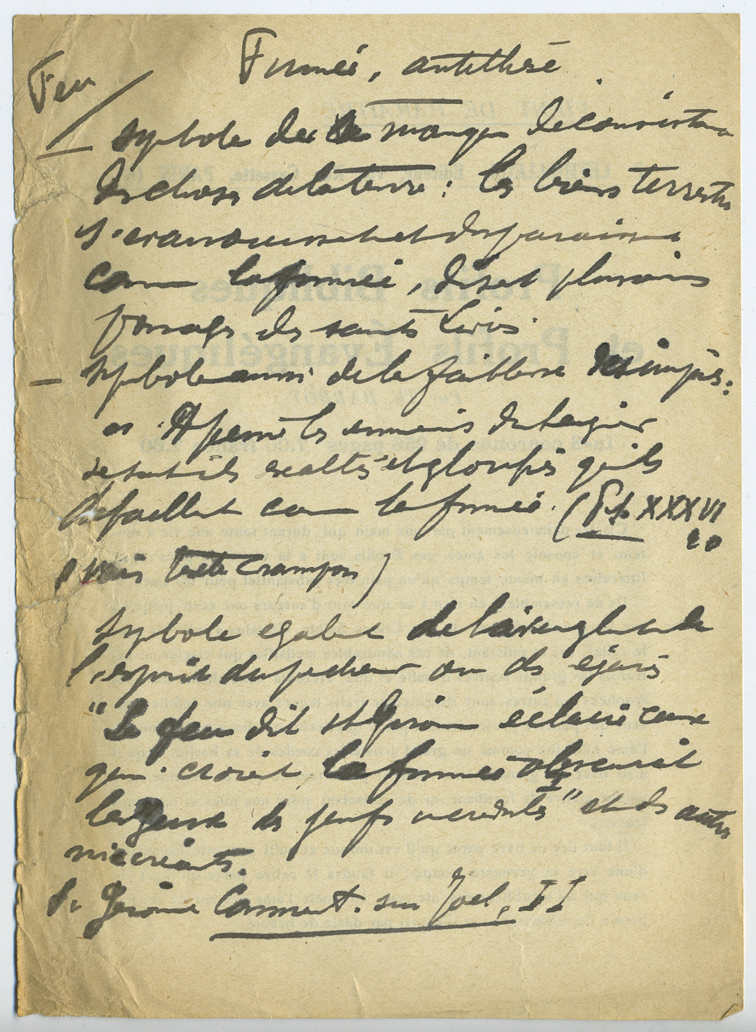 Feu
Fumée, antithèse
— symbole du manque de consistance
des choses de la terre : les biens terrestres
s'évanouissent et disparaissent
comme la fumée, disent plusieurs
passages des saints Livres.
— symbole aussi de la faiblesse des impies :
A peine les ennemis du
se sont-ils exaltés et glorifiés qu'ils
défaillent comme la fumée. (Ps XXXVI
20
texte Crampon)
symbole également de l'aveuglement de
l'esprit du pécheur ou des égarés
"Le feu dit St Jérôme éclaire ceux
qui croient, la fumée obscurcit
les yeux des juifs incrédules" et des autres
mécréants.
St Jérôme Comment. sur Joel, II